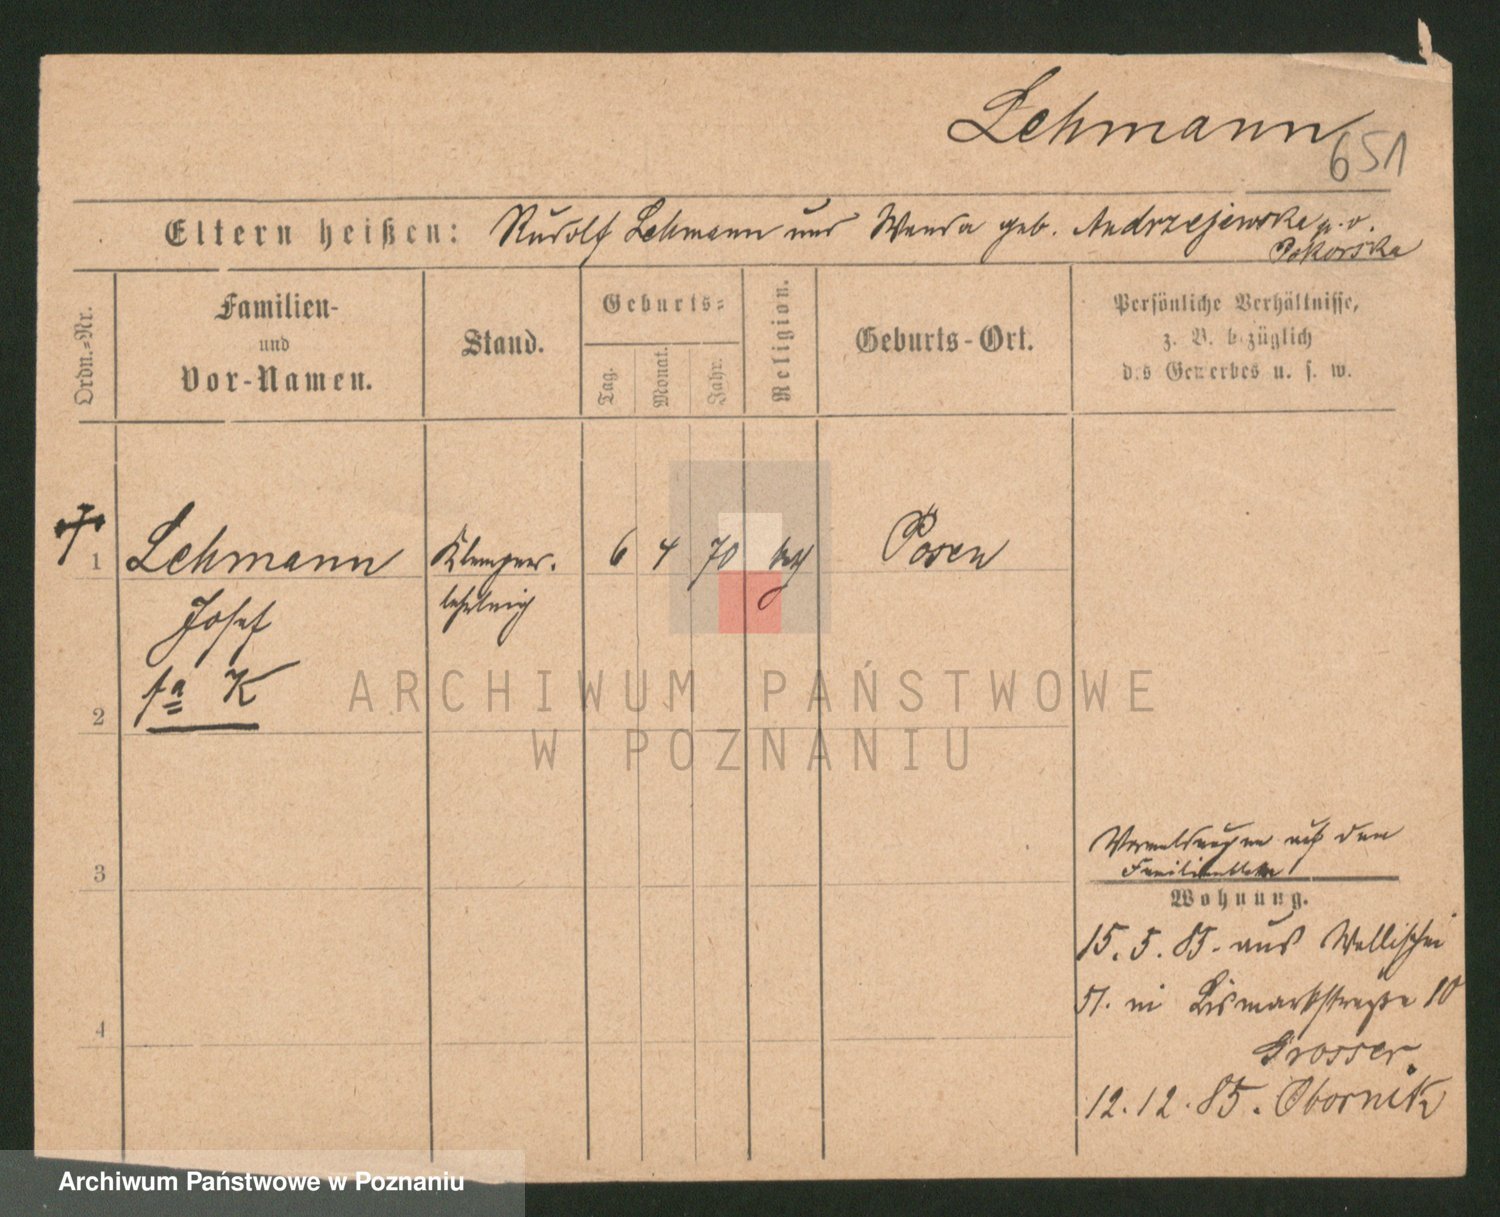 Lehmann
651
Eltern heißen: Rudolf Lehmann und Wanda geb. Andrzejewska
Pokorska
Ordn.-Nr.
Familien-
und
Vor-Namen.
Stand.
Geburts-
Tag.
Monat.
Jahr.
Religion.
Geburts-Ort.
Persönliche Verhältnisse,
z. B. bezüglich
des Gewerbes u. s. w.
1
Lehmann
Klempner-
6 4 70 kath
Posen
Josef
lehrling
K
2
3
4
Vermeldungen auf dem
Wohnung.
15. 5. 85. aus Wallischei
51. in Bismarkstrasse 10
Grosser.
12.12.85. Obornik
ARCHIWUM PAŃSTWOWE
W POZNANIU
Archiwum Państwowe w Poznaniu